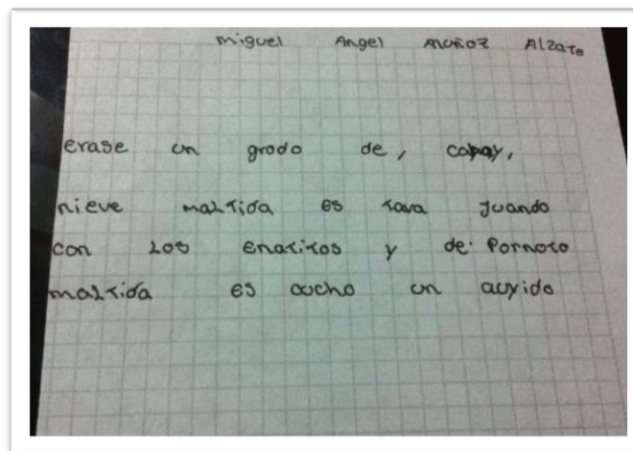 miguel Angel muñoz Alzate
erase un grodo de, copoy,
nieve maltida es tava Juando
con Los enatitos y de Pornoto
maltida es cucho un auyido